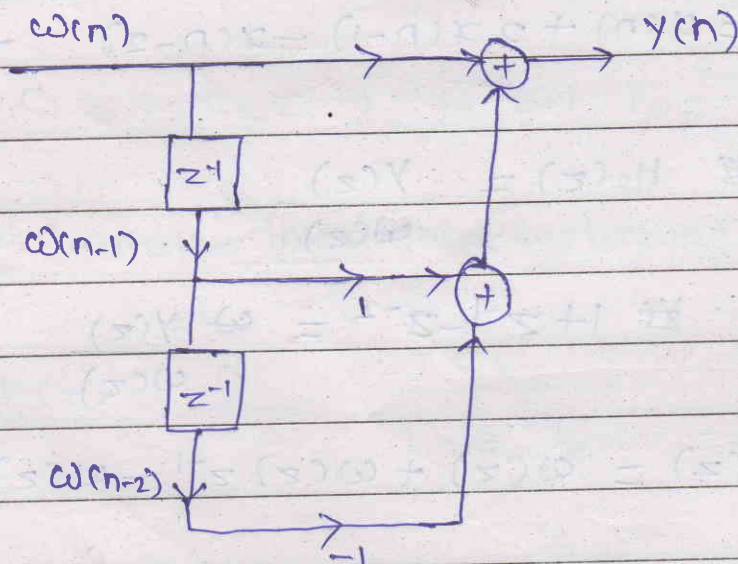 ω(n) + y(n)
z⁻¹
ω(n-1)
1 +
z⁻¹
ω(n-2)
-1